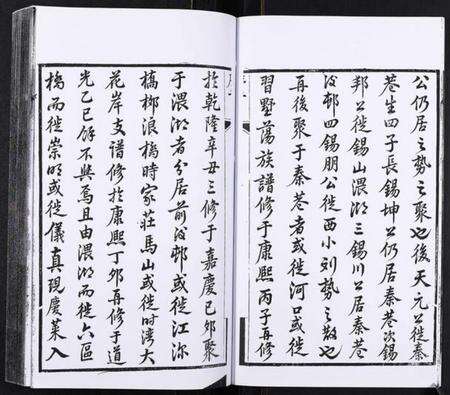 公仍居之勢之聚也後天元公徙秦
巷生四子長錫坤公仍居秦巷次錫
邦公徙錫山渭湖三錫川公居秦巷
後邨四錫朋公徙西小刘勢之散也
再後聚于秦巷者或徙河口或徙
習墅蕩族譜修于康熙丙子再修
於乾隆辛丑三修于嘉慶己卯聚
于渭湖者分居前後邨或徙江溪
橋梆浪橋時家莊馬山或徙時灣大
花岸支譜修於康熙丁卯再修于道
光乙巳餘不與焉且由渭湖而徙六區
橋而徙崇明或徙儀真現慶菜入